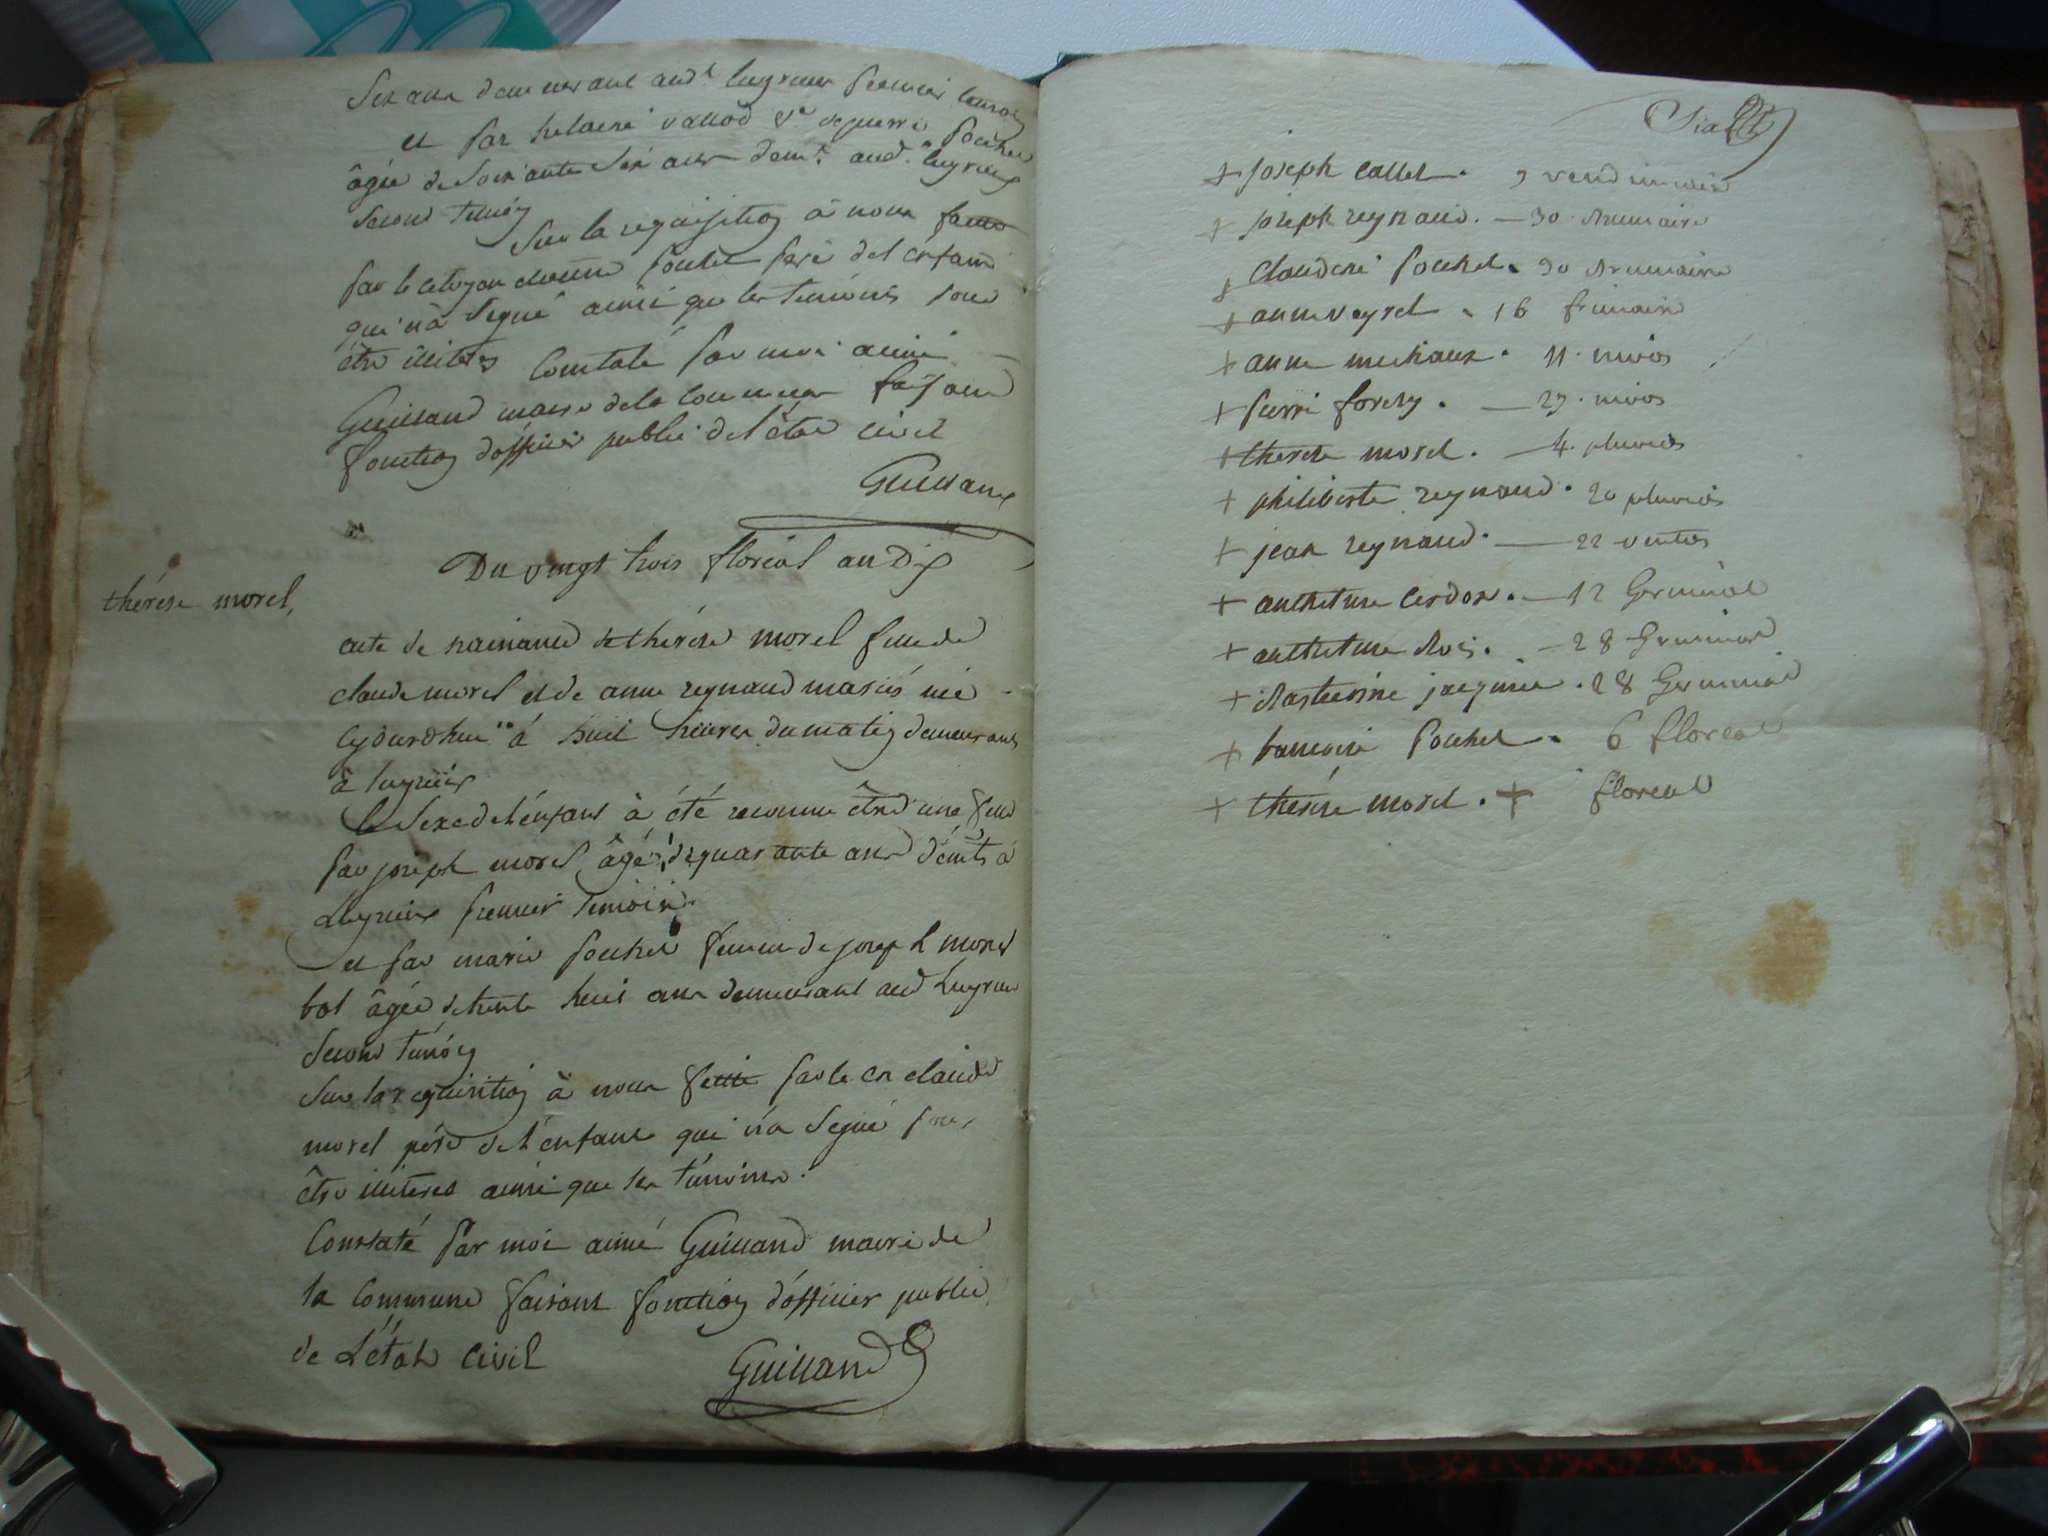 six ans demeurant aud.t luyrieu premier temoin
et par helaine vallod v.e de pierre pochet
âgée de soixante six ans dem.t aud.t luyrieux
second temoin
sur la requisition à nous faitte
par le citoyen pochet pere de l'enfant
qui n'a signé ainsi que les temoins pour
être illiteres Constaté par moi aimé
Guilland maire de la commune faisant
fonction d'officier public de l'état civil
Guilland
Du vingt trois floréal an Dix
thérése morel,
acte de naissance de thérése morel fille de
claude morel et de anne reynaud mariés née
cejourdhui à huit heures du matin demeurants
à luyrieux
le sexe de l'enfant à été reconnu être une fille
par joseph morel âgé de quarante ans dem.t à
Luyrieux premier temoin
et par marie pochet femme de joseph morel
bot âgée de trente huit ans demeurant aud luyrieu
second témoin
sur la requisition à nous faitte par le cn claude
morel pére de l'enfant qui n'a signé pour
être illiteres ainsi que les témoins.
Constaté par moi aimé Guilland maire de
la Commune faisant fonction d'officier public
de L'état Civil
Guilland
+ joseph callet. 9 vendimiaire
+ joseph reynaud. — 30 Brumaire
+ claudine pochet. 30 Brumaire
+ anne veyret. 16 frimaire
+ anne michaux. 11. nivos
+ pierre forest. — 29. nivos
+ therese morel. — 4. pluvios
+ philiberte reynaud. 20 pluvios
+ jean reynaud. — 22 ventos
+ anthelme cerdon. — 12 Germinal
+ anthelme. — 28 Germinal
+ 28 Germinal
+ francoise pochet. 6 floreal
+ thérése morel. + floreal